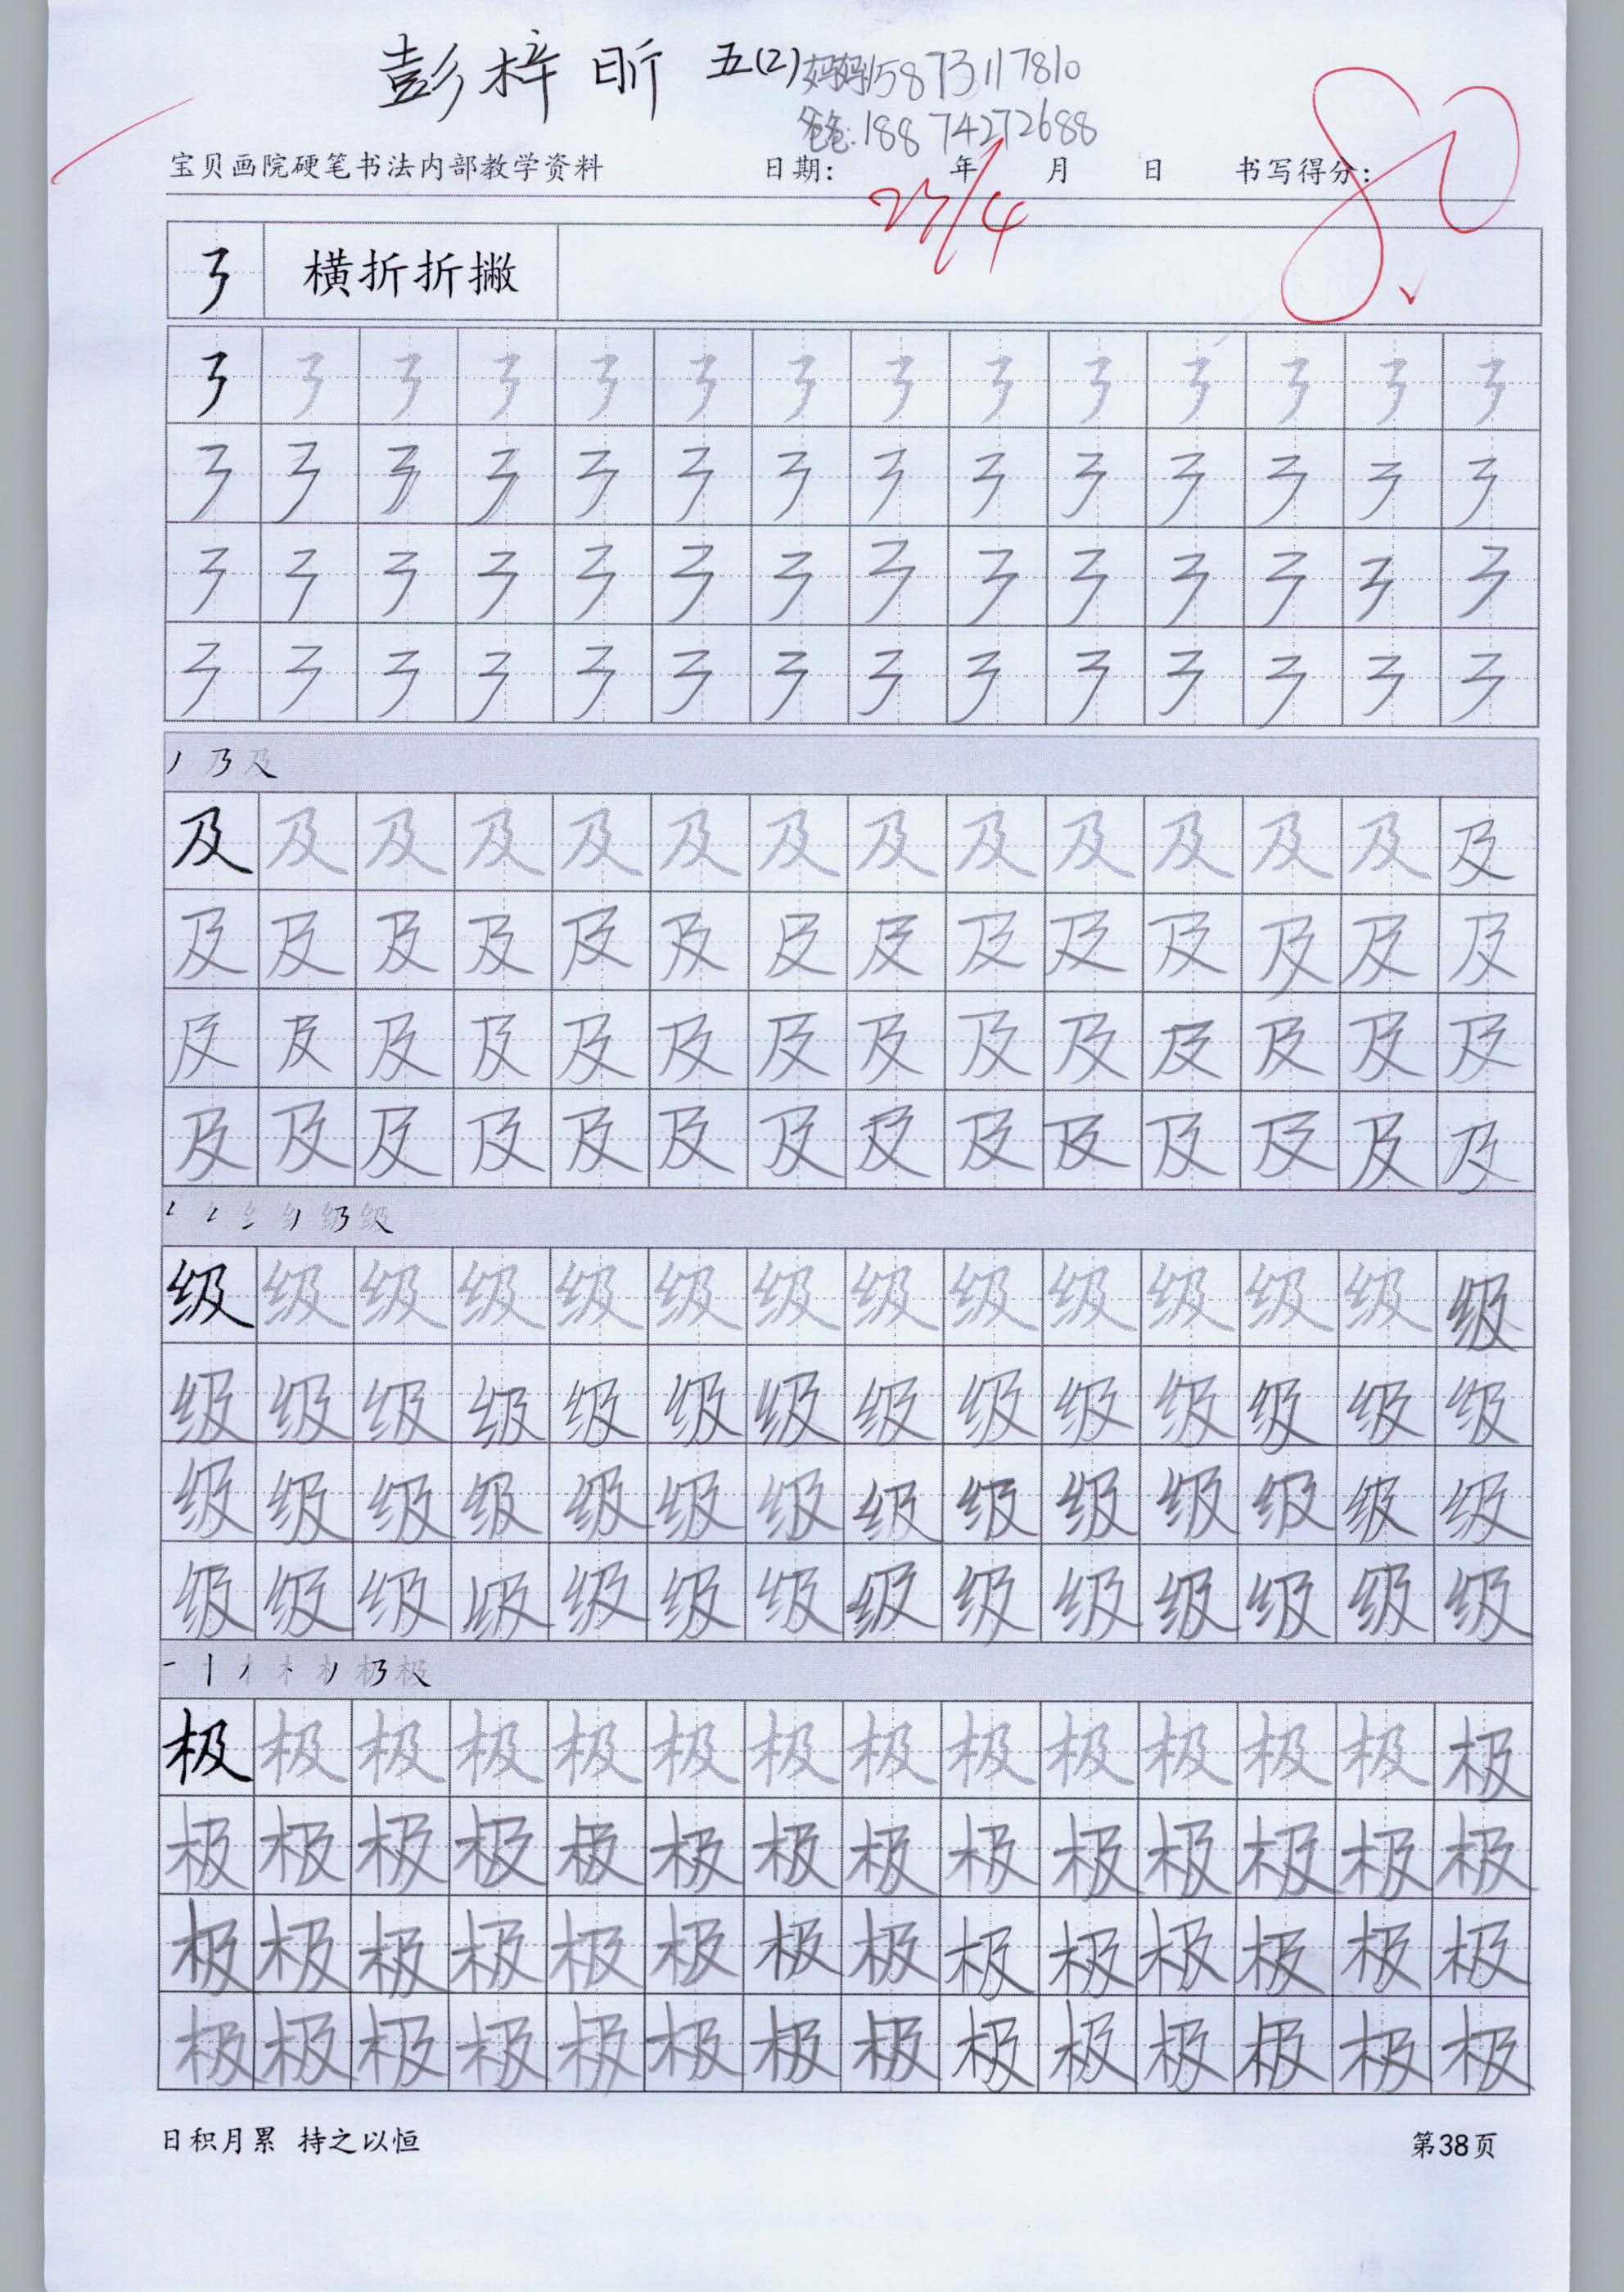 彭梓昕 五(2) 妈妈15873117810
爸爸:18874272688
宝贝画院硬笔书法内部教学资料 日期: 年 月 日 书写得分:
27/4 80
㇋ 横折折撇
㇋ ㇋ ㇋ ㇋ ㇋ ㇋ ㇋ ㇋ ㇋ ㇋ ㇋ ㇋ ㇋ ㇋
㇋ ㇋ ㇋ ㇋ ㇋ ㇋ ㇋ ㇋ ㇋ ㇋ ㇋ ㇋ ㇋ ㇋
㇋ ㇋ ㇋ ㇋ ㇋ ㇋ ㇋ ㇋ ㇋ ㇋ ㇋ ㇋ ㇋ ㇋
㇋ ㇋ ㇋ ㇋ ㇋ ㇋ ㇋ ㇋ ㇋ ㇋ ㇋ ㇋ ㇋ ㇋
丿 乃 及
及 及 及 及 及 及 及 及 及 及 及 及 及 及
及 及 及 及 及 及 及 及 及 及 及 及 及 及
及 及 及 及 及 及 及 及 及 及 及 及 及 及
及 及 及 及 及 及 及 及 及 及 及 及 及 及
级
级 级 级 级 级 级 级 级 级 级 级 级 级 级
级 级 级 级 级 级 级 级 级 级 级 级 级 级
级 级 级 级 级 级 级 级 级 级 级 级 级 级
级 级 级 级 级 级 级 级 级 级 级 级 级 级
极
极 极 极 极 极 极 极 极 极 极 极 极 极 极
极 极 极 极 极 极 极 极 极 极 极 极 极 极
极 极 极 极 极 极 极 极 极 极 极 极 极 极
极 极 极 极 极 极 极 极 极 极 极 极 极 极
日积月累 持之以恒 第38页